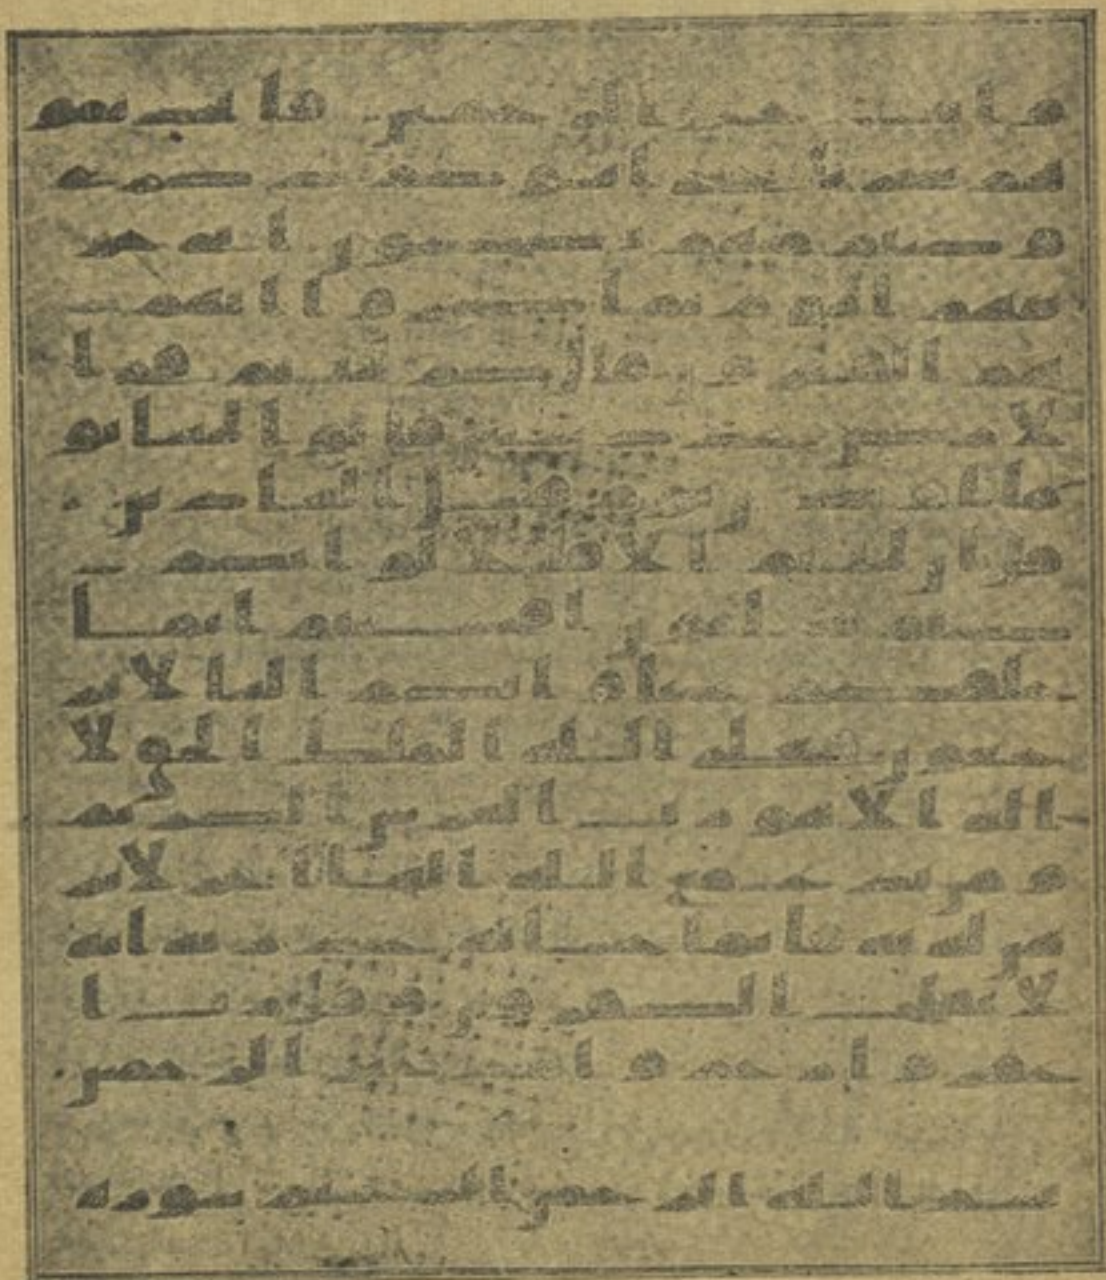 وانت خير الرحمين فاتخذتمو
هم سخريا حتى انسوكم ذكري
وكنتم منهم تضحكون اني جز
يتهم اليوم بما صبروا انهم
هم الفائزون قل كم لبثتم في ا
لارض عدد سنين قالوا لبثنا يو
ما او بعض يوم فسل العادين
قل ان لبثتم الا قليلا لو انكم
كنتم تعلمون افحسبتم انما
خلقنكم عبثا وانكم الينا لا تر
جعون فتعلى الله الملك الحق لا
اله الا هو رب العرش الكريم
ومن يدع مع الله الها اخر لا بر
هن له به فانما حسابه عند ربه انه
لا يفلح الكفرون وقل رب ا
غفر وارحم وانت خير الرحمين
بسم الله الرحمن الرحيم سورة